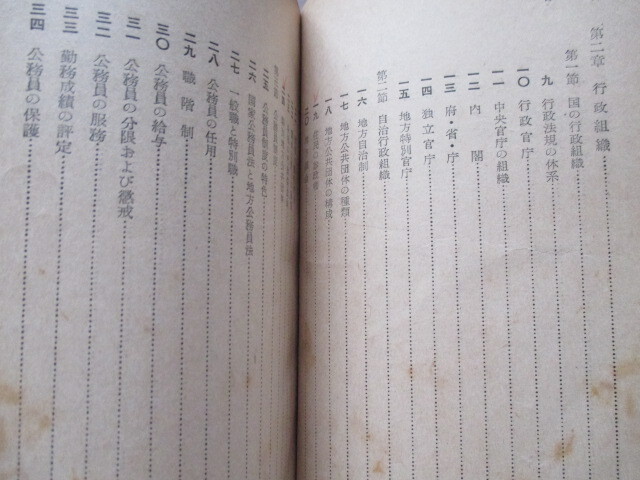 第二章 行政組織
第一節 国の行政組織
九 行政法規の体系
一〇 行政官庁
一一 中央官庁の組織
一二 内閣
一三 府・省・庁
一四 独立官庁
一五 地方特別官庁
第二節 自治行政組織
一六 地方自治制
一七 地方公共団体の種類
一八 地方公共団体の構成
一九
二五 公務員制度の特色
二六 国家公務員法と地方公務員法
二七 一般職と特別職
二八 公務員の任用
二九 職階制
三〇 公務員の給与
三一 公務員の分限および懲戒
三二 公務員の服務
三三 勤務成績の評定
三四 公務員の保護